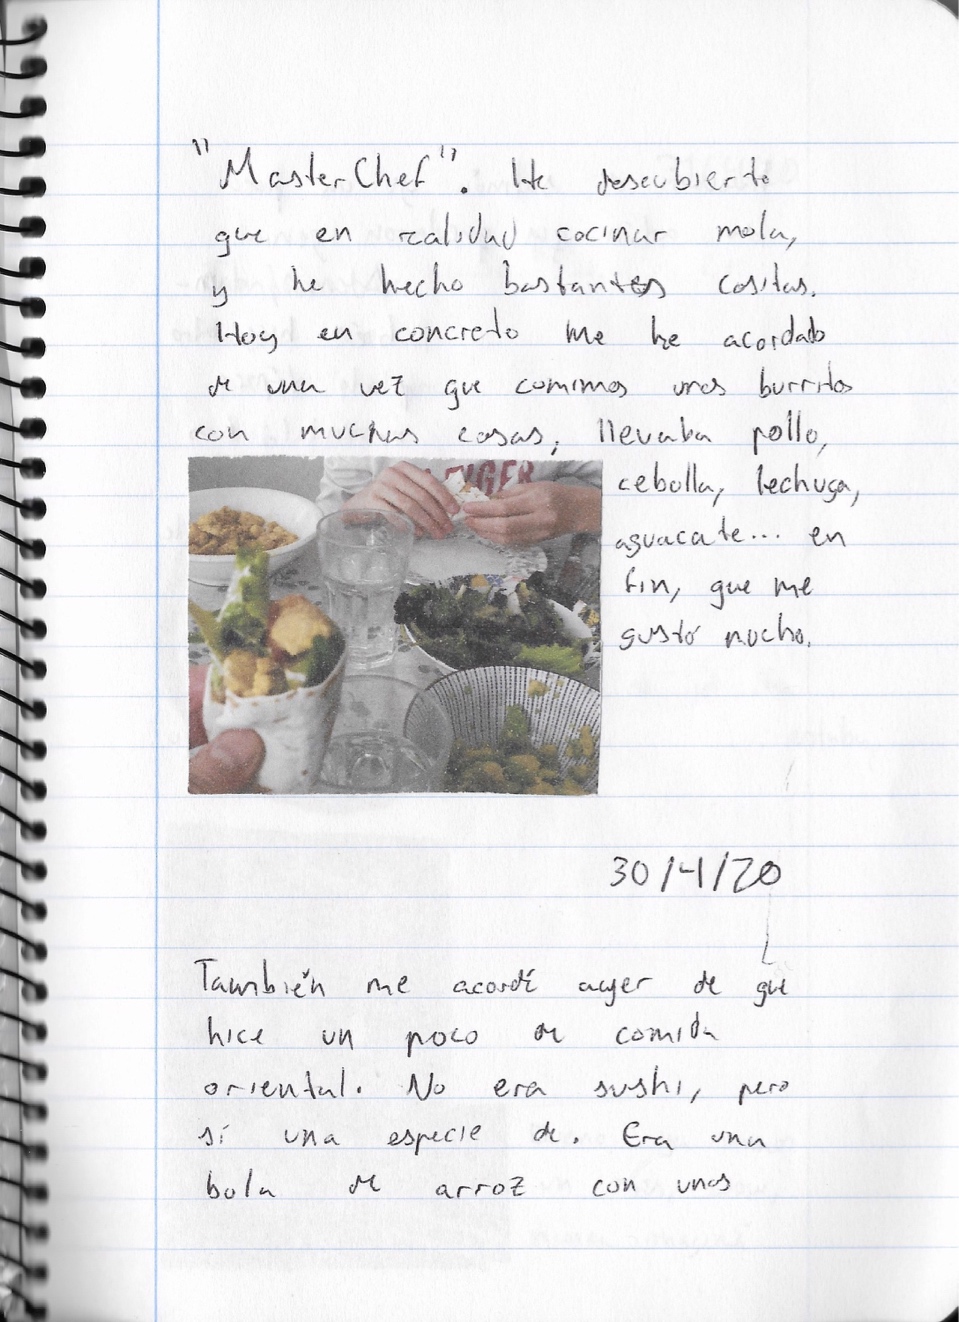 "MasterChef". He descubierto
que en realidad cocinar mola,
y he hecho bastantes cositas.
Hoy en concreto me he acordado
de una vez que comimos unos burritos
con muchas cosas; llevaba pollo,
cebolla, lechuga,
aguacate... en
fin, que me
gustó mucho.
30/4/20
También me acordé ayer de que
hice un poco de comida
oriental. No era sushi, pero
sí una especie de. Era una
bola de arroz con unos